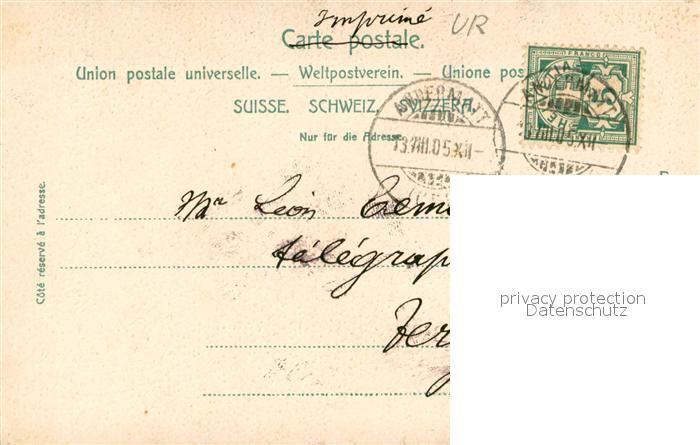 Imprimé
UR
Carte postale.
Union postale universelle. — Weltpostverein. — Unione pos
SUISSE. SCHWEIZ. SVIZZERA.
Nur für die Adresse
FRANCO
ANDERMATT
13.VIII.05.XII-
ANDERMATT
VIII.05.XII
Côté réservé à l'adresse.
Mr Léon
télégrap
privacy protection
Datenschutz